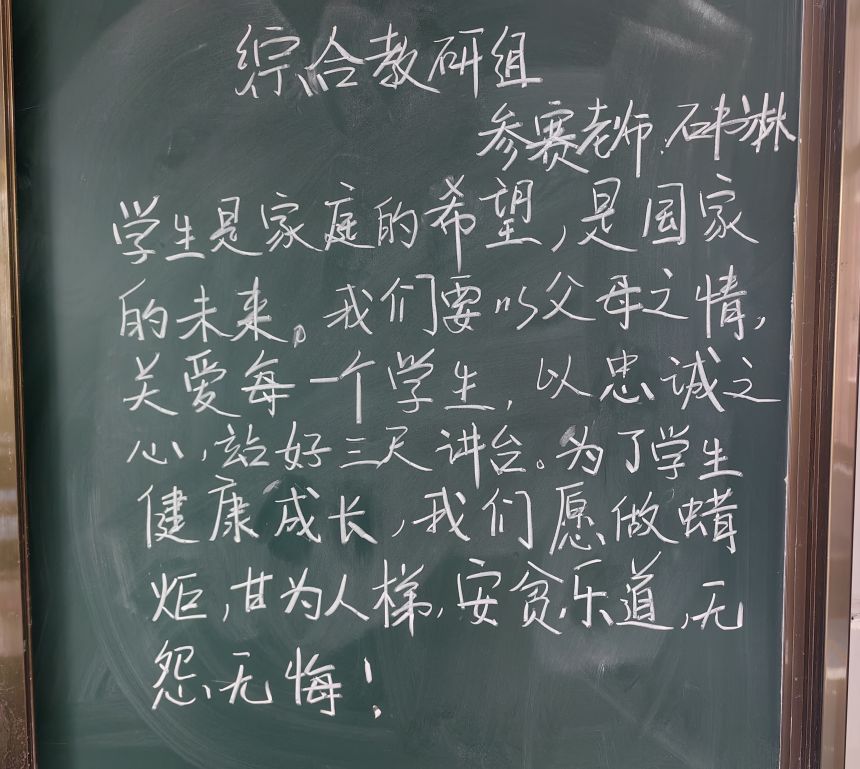 综合教研组
参赛老师.石书淋
学生是家庭的希望,是国家
的未来。我们要以父母之情,
关爱每一个学生,以忠诚之
心,站好三尺讲台。为了学生
健康成长,我们愿做蜡
炬,甘为人梯,安贫乐道,无
怨无悔!